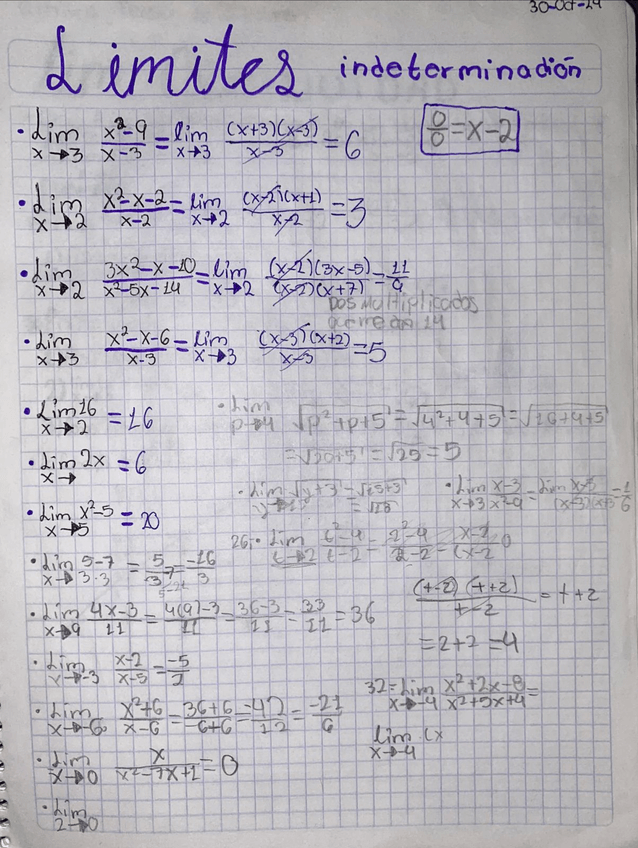 30-Oct-24
Limites indeterminación
• Lim x→3 x²-9/x-3 = lim x→3 (x+3)(x-3)/x-3 = 6
0/0 = x-2
• Lim x→2 x²-x-2/x-2 = Lim x→2 (x-2)(x+1)/x-2 = 3
• Lim x→2 3x²-x-10/x²-5x-14 = lim x→2 (x-2)(3x-5)/(x-2)(x+7) = 11/9
Dos multiplicados
14
• Lim x→3 x²-x-6/x-3 = Lim x→3 (x-3)(x+2)/x-3 = 5
• Lim x→2 16 = 16
• Lim p→4 √p²+p+5 = √4²+4+5 = √16+4+5
= √20+5 = √25 = 5
• Lim x→ 2x = 6
• Lim x→3 x-3/x²-9 = Lim x-3/(x-3)(x+3) = 1/6
• Lim x→5 x²-5 = 20
26. • Lim t→2 t²-4/t-2 = 2²-4/2-2 = 0
(t-2)(t+2)/t-2 = t+2
= 2+2 = 4
• Lim x→3 5-7
-16/3
• Lim x→9 4x-3/11 = 4(9)-3/11 = 36-3/11 = 33/11 = 36
• Lim x→-3 x-2/x-5 = -5
• Lim x→-6 x²+6/x-6 = 36+6/-6+6 = -42/12 = -21/6
32= Lim x→-4 x²+2x-8/x²+5x+4 =
lim x→-4 (x
• Lim x→0 x/x²-7x+1 = 0
• Lim 2→0